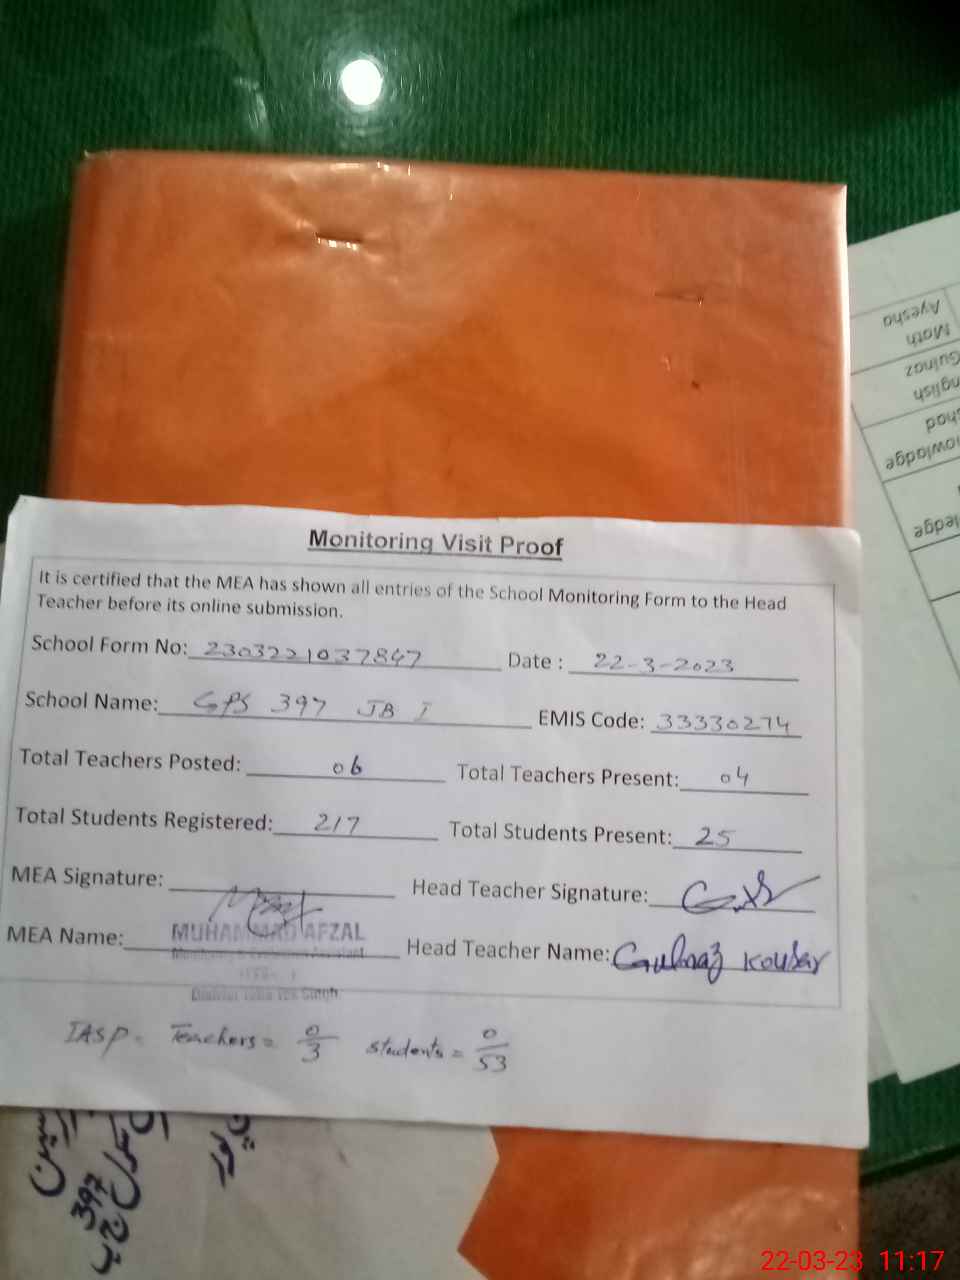 Ayesha
Math
Gulnaz
nglish
shad
owladge
ledge
Monitoring Visit Proof
It is certified that the MEA has shown all entries of the School Monitoring Form to the Head
Teacher before its online submission.
School Form No: 2303221037847 Date : 22-3-2023
School Name: GPS 397 JB I EMIS Code: 33330274
Total Teachers Posted: 06 Total Teachers Present: 04
Total Students Registered: 217 Total Students Present: 25
MEA Signature: Head Teacher Signature:
MEA Name: MUHAMMAD AFZAL Head Teacher Name: Gulnaz Kousar
Monitoring & Evaluation Assistant
District Toba Tek Singh
IASP = Teachers = 0/3 students = 0/53
397
22-03-23 11:17